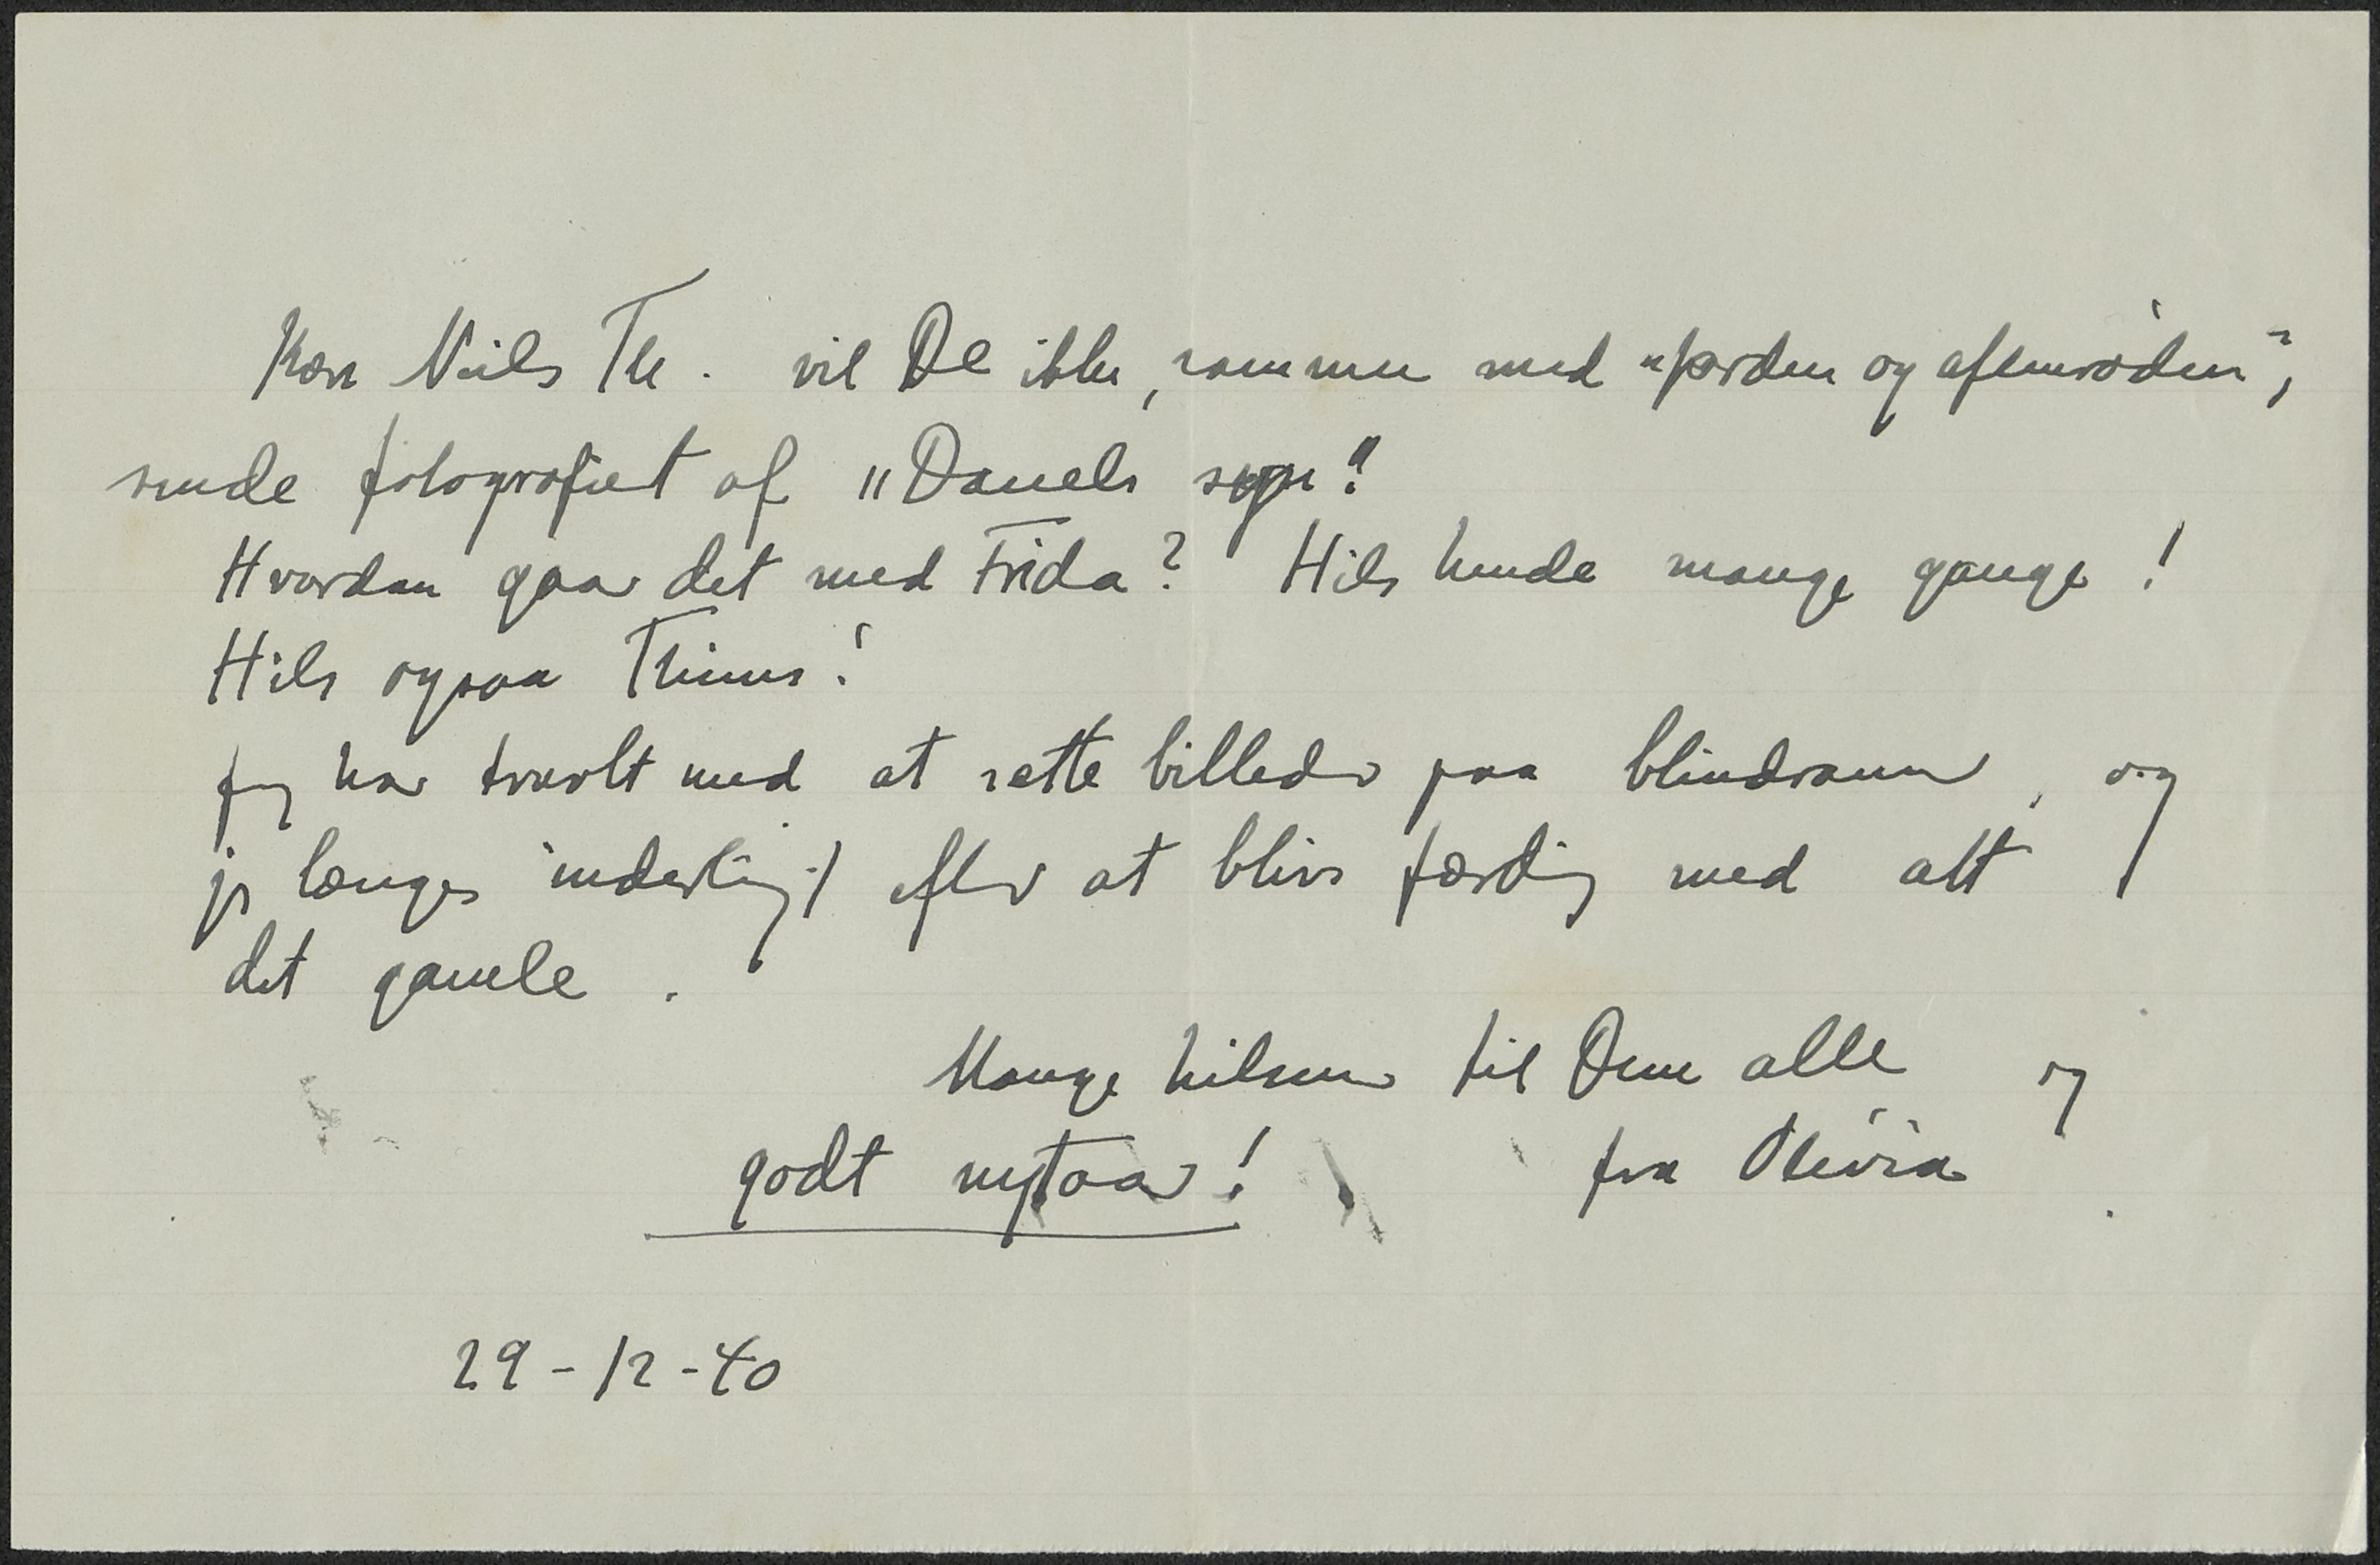 Kære Niels Th. vil De ikke, sammen med "jorden og aftenrøden",
sende fotografiet af "Danels søgn"?
Hvordan gaar det med Frida? Hils hende mange gange!
Hils ogsaa Thinus!
Jeg har travlt med at sætte billeder paa blindramme, og
jeg længes inderligt efter at blive færdig med alt
det gamle.
Mange hilsner til Dem alle og
godt nytaar! fra Olivia
29-12-40